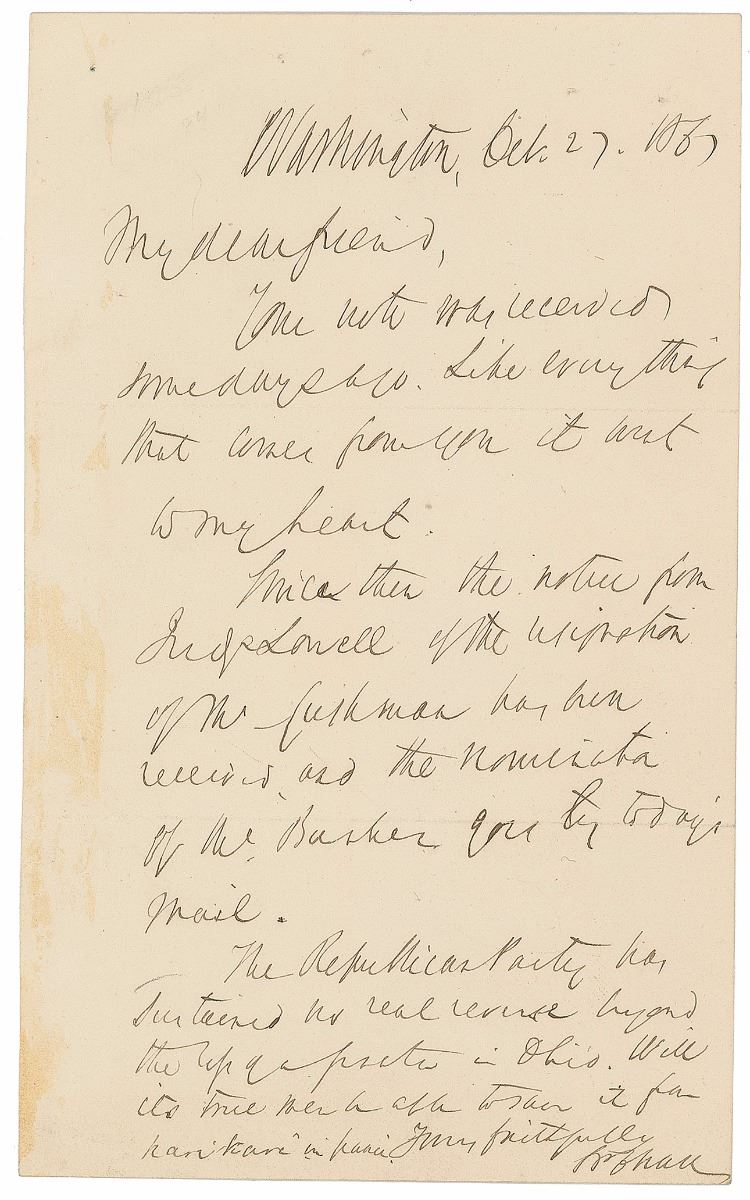 Washington, Oct. 27. 1867
My dear friend,
Your note was received
some days ago. Like every thing
that comes from you it went
to my heart.
Since then the notice from
Judge Lowell of the resignation
of Mr Cushman has been
received and the nomination
of Mr. Barker goes by today's
mail.
The Republican Party has
sustained no real reverse beyond
the in Ohio. Will
its true men be able to save it from
hari kari in panic. Yours faithfully
SPChase